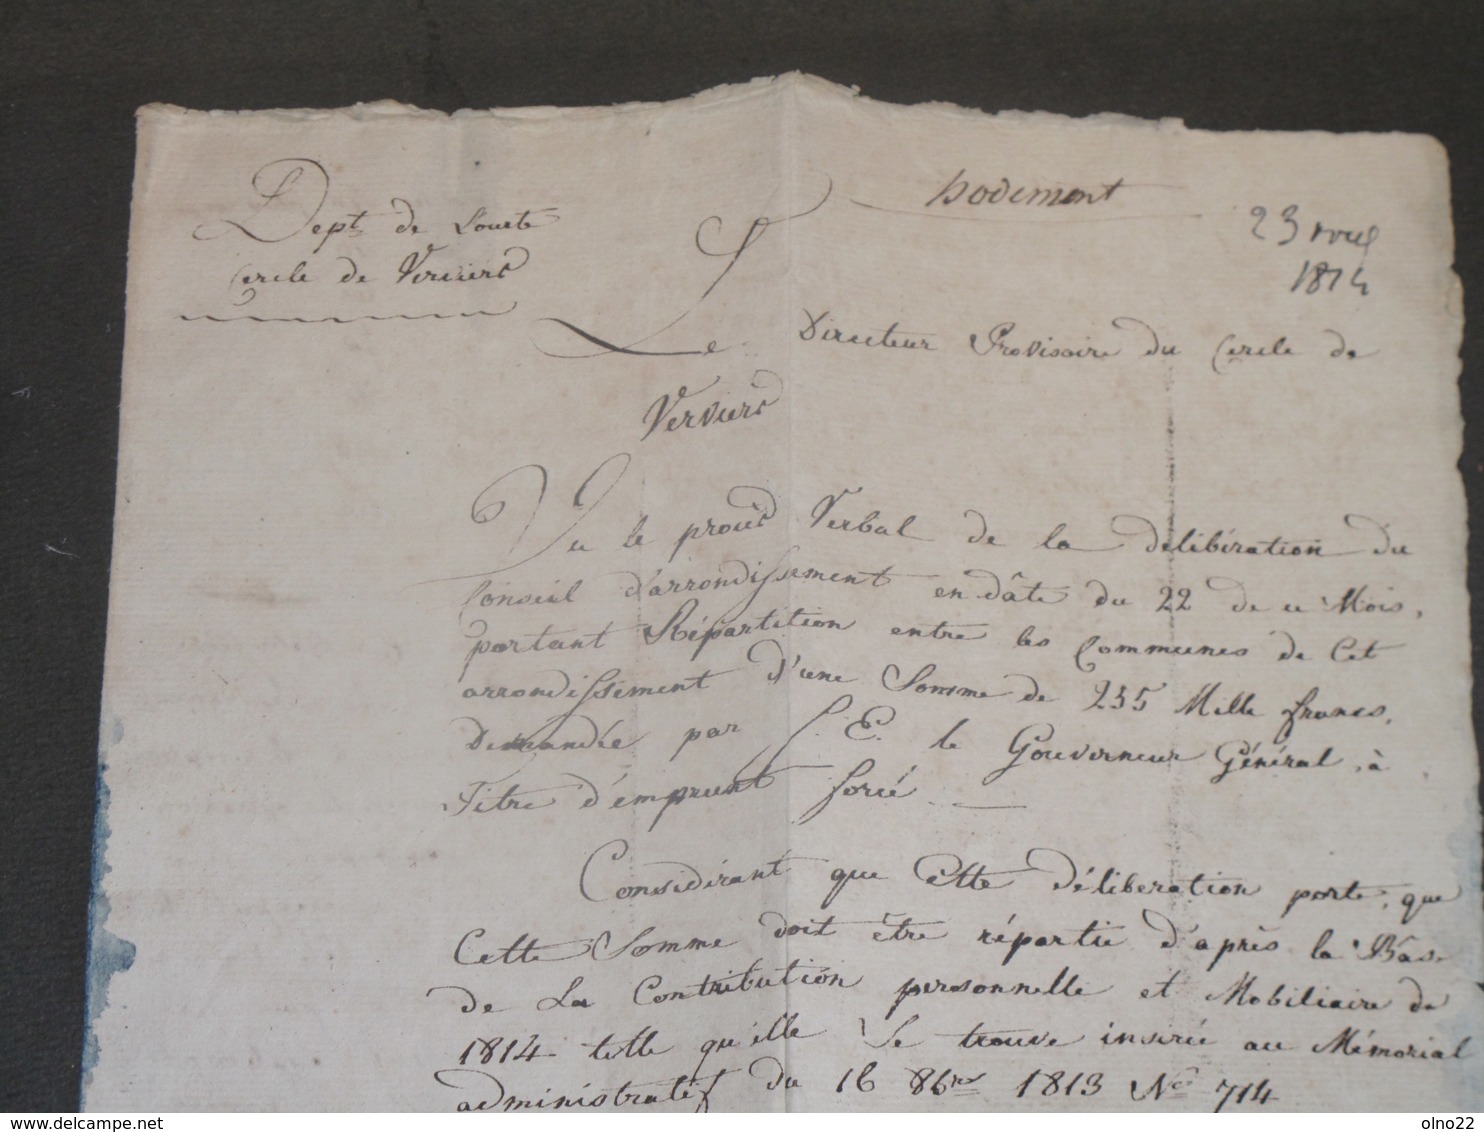 Dept de Lourte
Cercle de Verviers
hodimont
23 avril
1814
Le Directeur Provisoire du Cercle de
Verviers
Vu le procès Verbal de la délibération du
Conseil d'arrondissement en dâte du 22 de ce Mois,
portant Répartition entre les Communes de Cet
arrondissement d'une Somme de 235 Mille francs,
Demandée par S. E. le Gouverneur Général, à
Titre d'emprunt forcé
Considérant que Cette délibération porte, que
Cette Somme doit être répartie d'après la Bâse
de La Contribution personnelle et Mobiliaire de
1814 telle qu'elle Se trouve insérée au Mémorial
administratif du 16 8bre 1813 No 714
delcampe.net
olno22